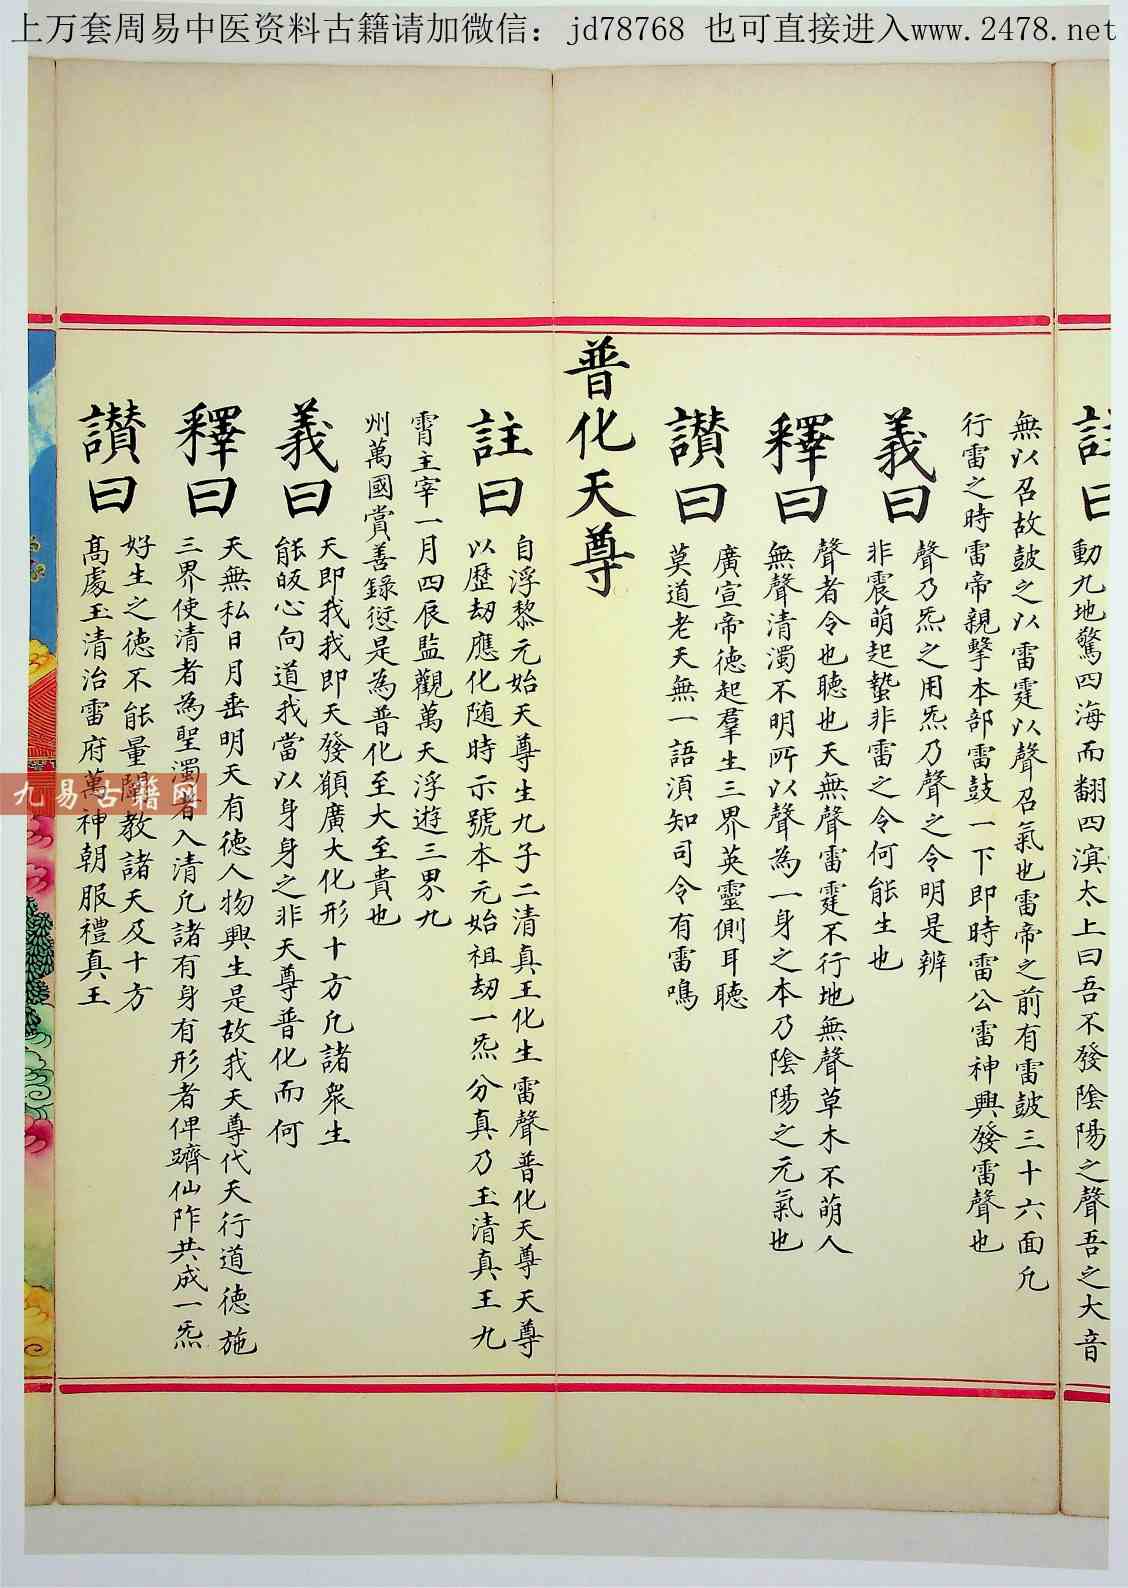 上万套周易中医资料古籍请加微信：jd78768 也可直接进入www.2478.net
註曰
動九地驚四海而翻四滇太上曰吾不發陰陽之聲吾之大音
無以召故鼓之以雷霆以聲召氣也雷帝之前有雷鼓三十六面凡
行雷之時雷帝親擊本部雷鼓一下即時雷公雷神興發雷聲也
義曰
聲乃炁之用炁乃聲之令明是辨
非震萌起蟄非雷之令何能生也
釋曰
聲者令也聽也天無聲雷霆不行地無聲草木不萌人
無聲清濁不明所以聲為一身之本乃陰陽之元氣也
讃曰
廣宣帝德起羣生三界英靈側耳聽
莫道老天無一語須知司令有雷鳴
普化天尊
註曰
自浮黎元始天尊生九子二清真王化生雷聲普化天尊天尊
以歷劫應化随時示號本元始祖劫一炁分真乃玉清真王九
霄主宰一月四辰監觀萬天浮遊三界九
州萬國賞善錄愆是為普化至大至貴也
義曰
天即我我即天發願廣大化形十方凡諸衆生
能皈心向道我當以身身之非天尊普化而何
釋曰
天無私日月垂明天有德人物興生是故我天尊代天行道德施
三界使清者為聖濁者入清凡諸有身有形者俾躋仙阼共成一炁
讃曰
好生之德不能量闡教諸天及十方
高處玉清治雷府萬神朝服禮真王
九易古籍网